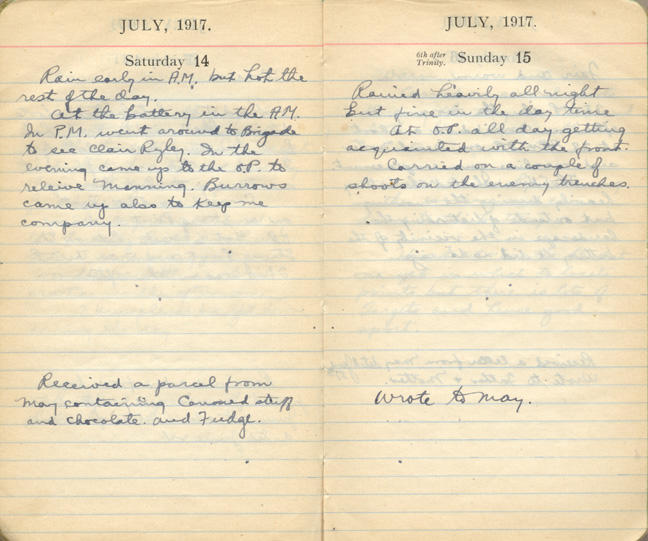 JULY, 1917.
Saturday 14
Rain early in A.M. but hot the
rest of the day.
At the battery in the A.M.
In P.M. went around to Brigade
to see Clair Ryley. In the
evening came up to the O.P. to
releive Manning. Burrows
came up also to keep me
company.
Received a parcel from
May containing Canned stuff
and chocolate. and Fudge.
JULY, 1917.
6th after Trinity. Sunday 15
Rained heavily all night
but fine in the day time
At O.P. all day getting
acquainted with the front.
Carried on a couple of
shoots on the enemy trenches.
Wrote to May.